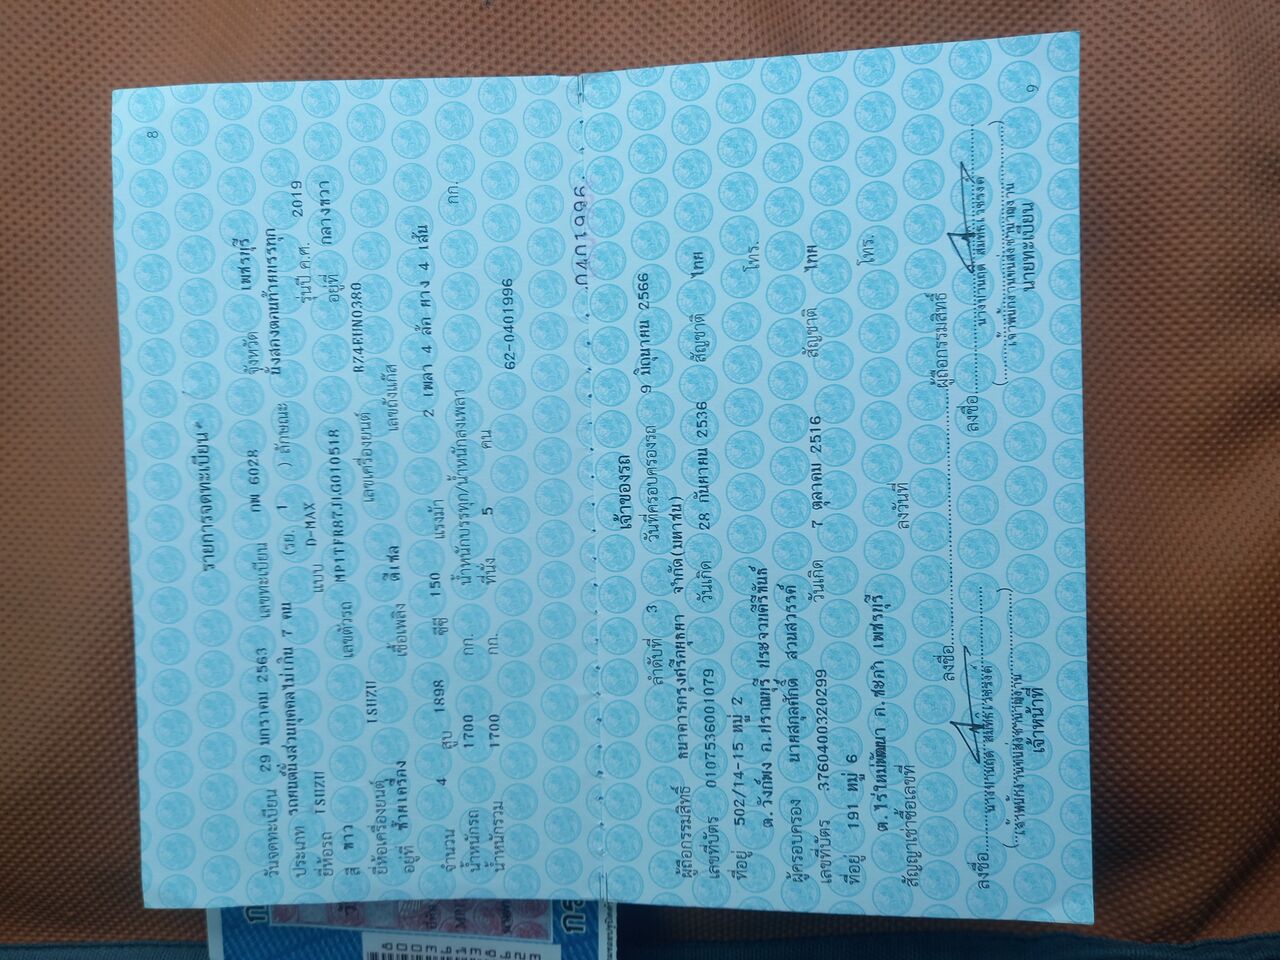 8
รายการจดทะเบียน
วันจดทะเบียน 29 มกราคม 2563 เลขทะเบียน กพ 6028 จังหวัด เพชรบุรี
ประเภท รถยนต์นั่งส่วนบุคคลไม่เกิน 7 คน (รย. 1 ) ลักษณะ นั่งสองตอนท้ายบรรทุก
ยี่ห้อรถ ISUZU แบบ D-MAX รุ่นปี ค.ศ. 2019
สี ขาว เลขตัวรถ MP1TFR87JLG010518 อยู่ที่ กลางขวา
ยี่ห้อเครื่องยนต์ ISUZU เลขเครื่องยนต์ RZ4EUN0380
อยู่ที่ ซ้ายเครื่อง เชื้อเพลิง ดีเซล เลขถังแก๊ส
จำนวน 4 สูบ 1898 ซีซี 150 แรงม้า 2 เพลา 4 ล้อ ยาง 4 เส้น
น้ำหนักรถ 1700 กก. น้ำหนักบรรทุก/น้ำหนักลงเพลา กก.
น้ำหนักรวม 1700 กก. ที่นั่ง 5 คน
62-0401996
0401996
เจ้าของรถ
ลำดับที่ 3 วันที่ครอบครองรถ 9 มิถุนายน 2566
ผู้ถือกรรมสิทธิ์ ธนาคารกรุงศรีอยุธยา จำกัด(มหาชน)
เลขที่บัตร 0107536001079 วันเกิด 28 กันยายน 2536 สัญชาติ ไทย
ที่อยู่ 502/14-15 หมู่ 2
ต.วังก์พง อ.ปราณบุรี ประจวบคีรีขันธ์ โทร.
ผู้ครอบครอง นายสกุลศักดิ์ สวนสวรรค์
เลขที่บัตร 3760400320299 วันเกิด 7 ตุลาคม 2516 สัญชาติ ไทย
ที่อยู่ 191 หมู่ 6
ต.ไร่ใหม่พัฒนา อ.ชะอำ เพชรบุรี โทร.
สัญญาเช่าซื้อเลขที่ ลงวันที่
ลงชื่อ ผู้ถือกรรมสิทธิ์
ลงชื่อ ลงชื่อ
เจ้าพนักงานขนส่งชำนาญงาน เจ้าพนักงานขนส่งชำนาญงาน
เจ้าหน้าที่ นายทะเบียน
9